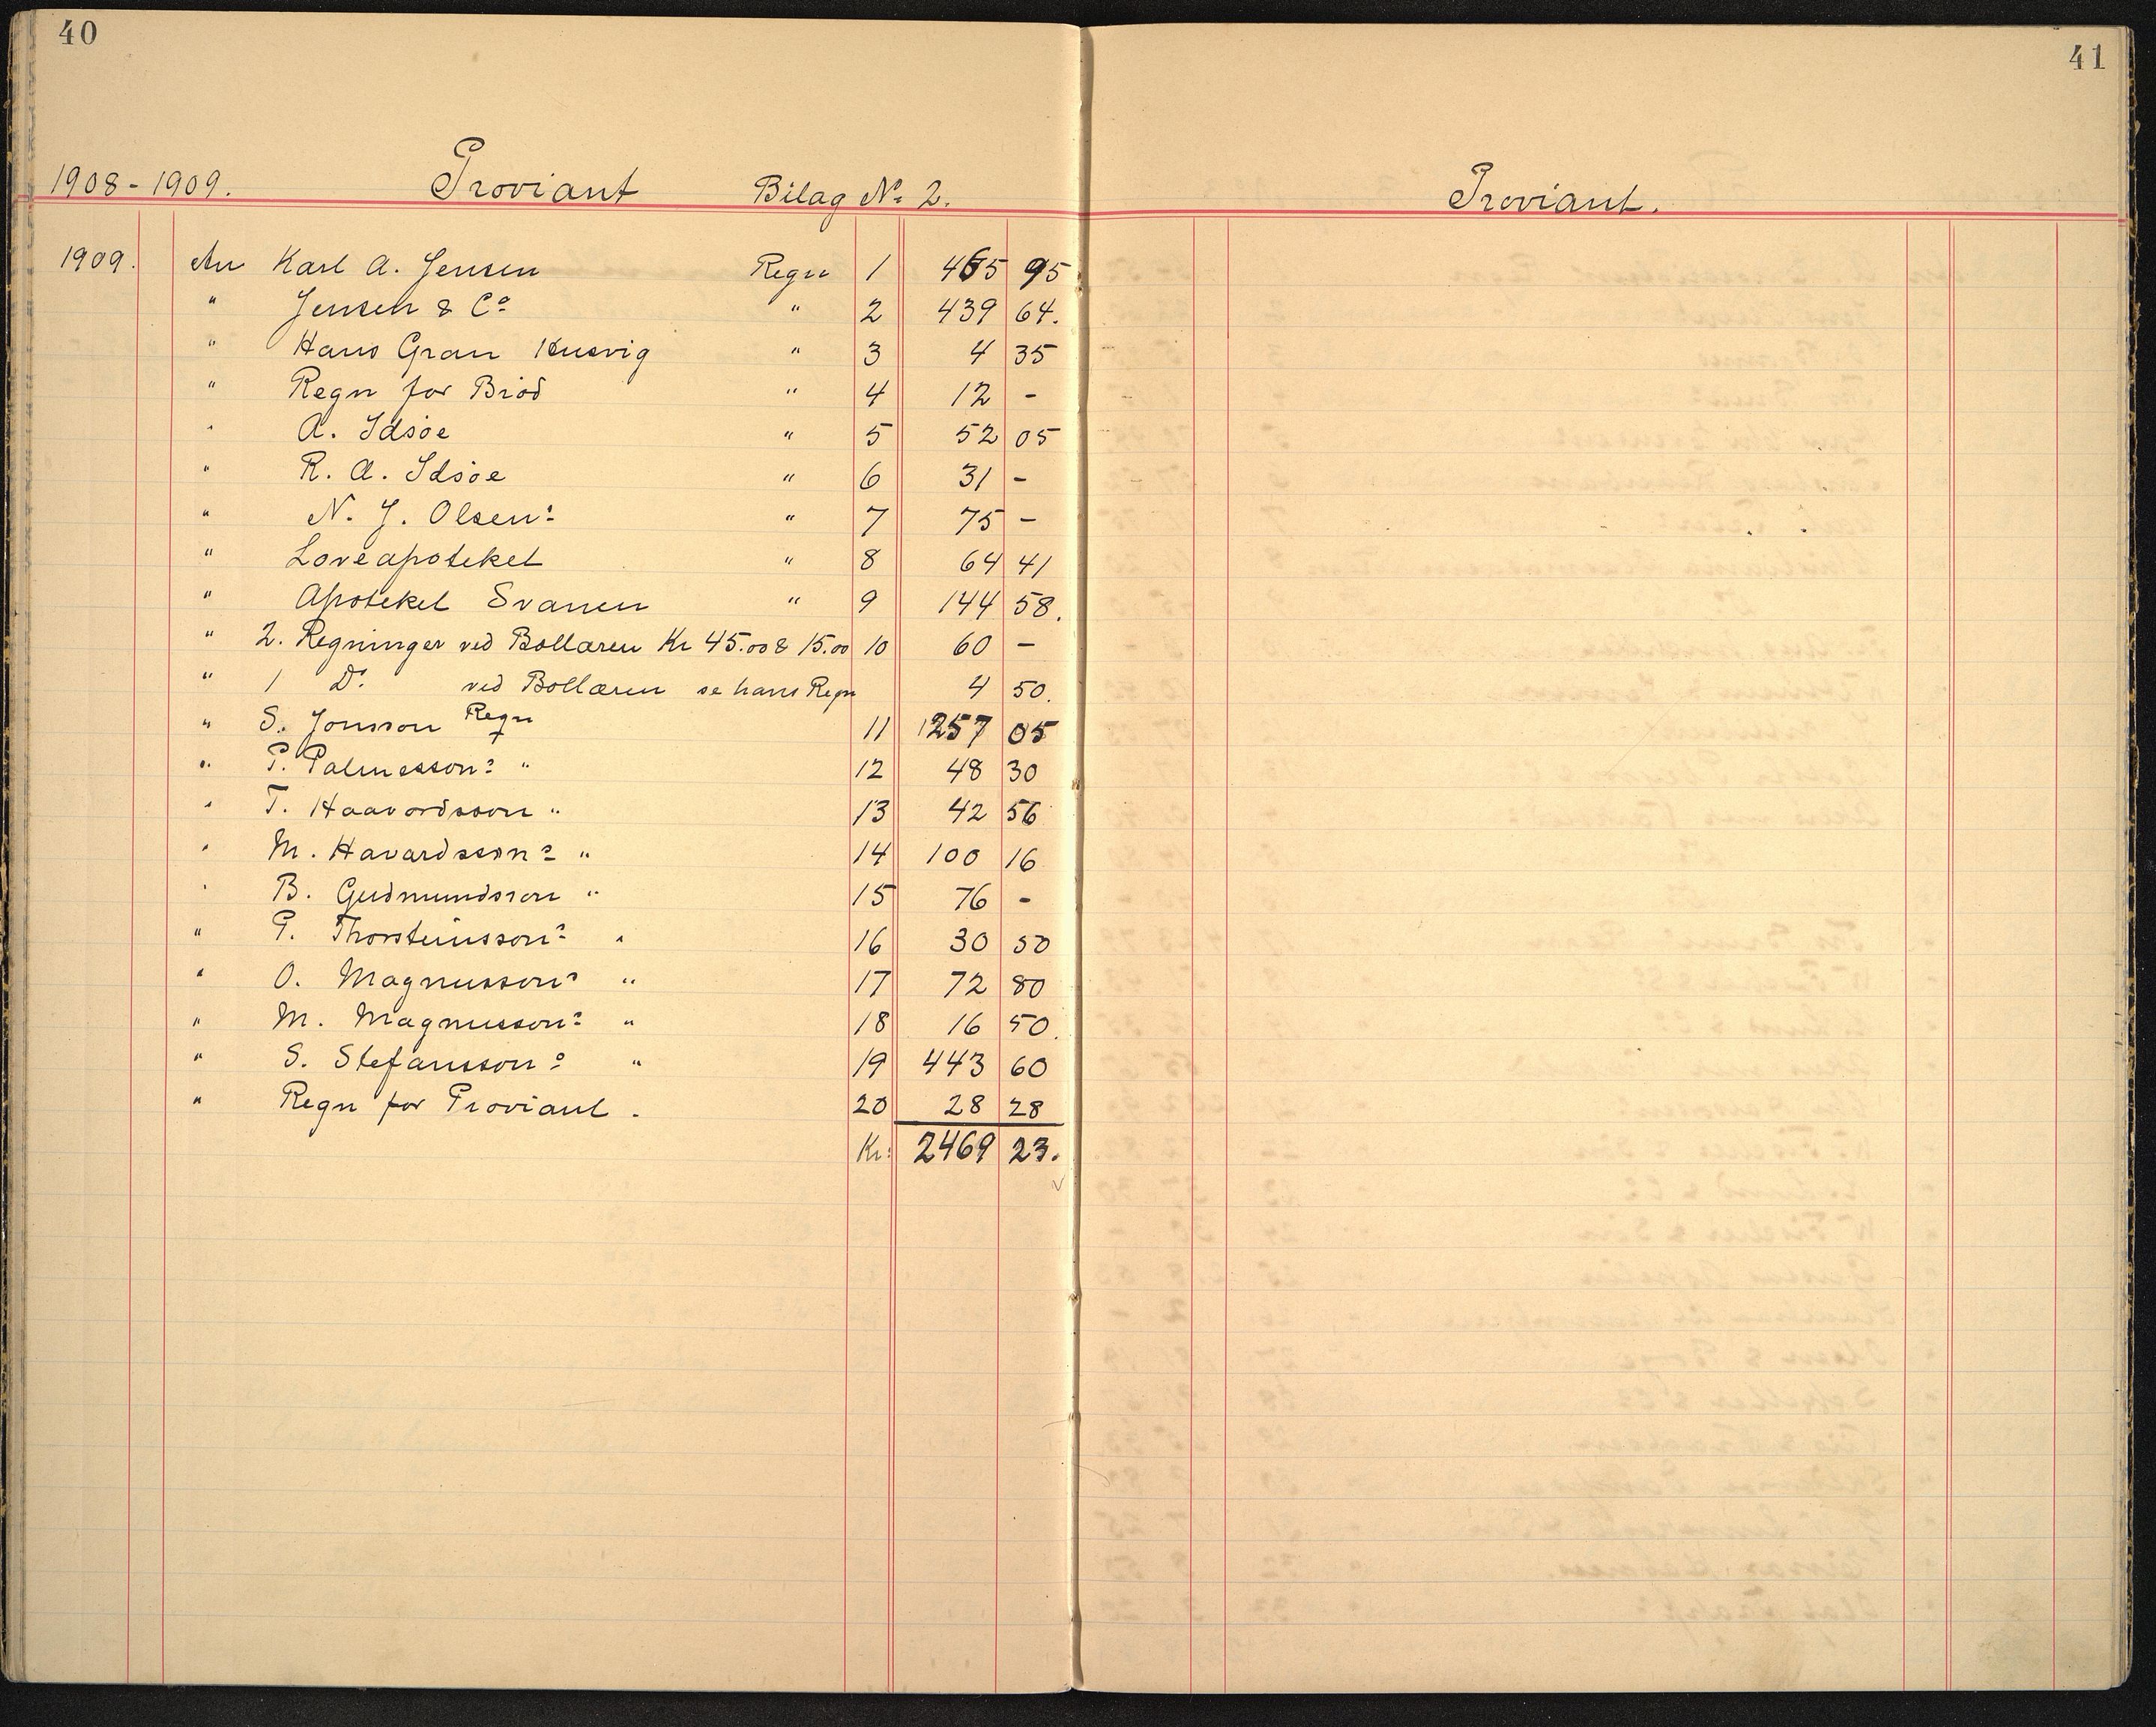 40
1908-1909. Proviant Bilag No 2.
1909. An Karl A. Jensen Regn 1 465 95
" Jensen & Co " 2 439 64.
" Hans Gran Husvig " 3 4 35
" Regn for Bröd " 4 12 -
" A. Idsöe " 5 52 05
" R. A. Idsöe " 6 31 -
" N. J. Olsen: " 7 75 -
" Loveapoteket " 8 64 41
" Apoteket Svanen " 9 144 58.
" 2. Regninger ved Bollæren Kr 45.00 & 15.00 10 60 -
" 1 Do ved Bollæren se hans Regn 4 50.
" S. Jonsson Regn 11 257 05
" P. Palmesson: " 12 48 30
" T. Haavordsson " 13 42 56
" M. Havardsson: " 14 100 16
" B. Gudmundsson " 15 76 -
" P. Thorsteinsson: " 16 30 50
" O. Magnusson: " 17 72 80
" M. Magnusson: " 18 16 50.
" S. Stefansson: " 19 443 60
" Regn for Proviant. 20 28 28
Kr: 2469 23.
41
Proviant.